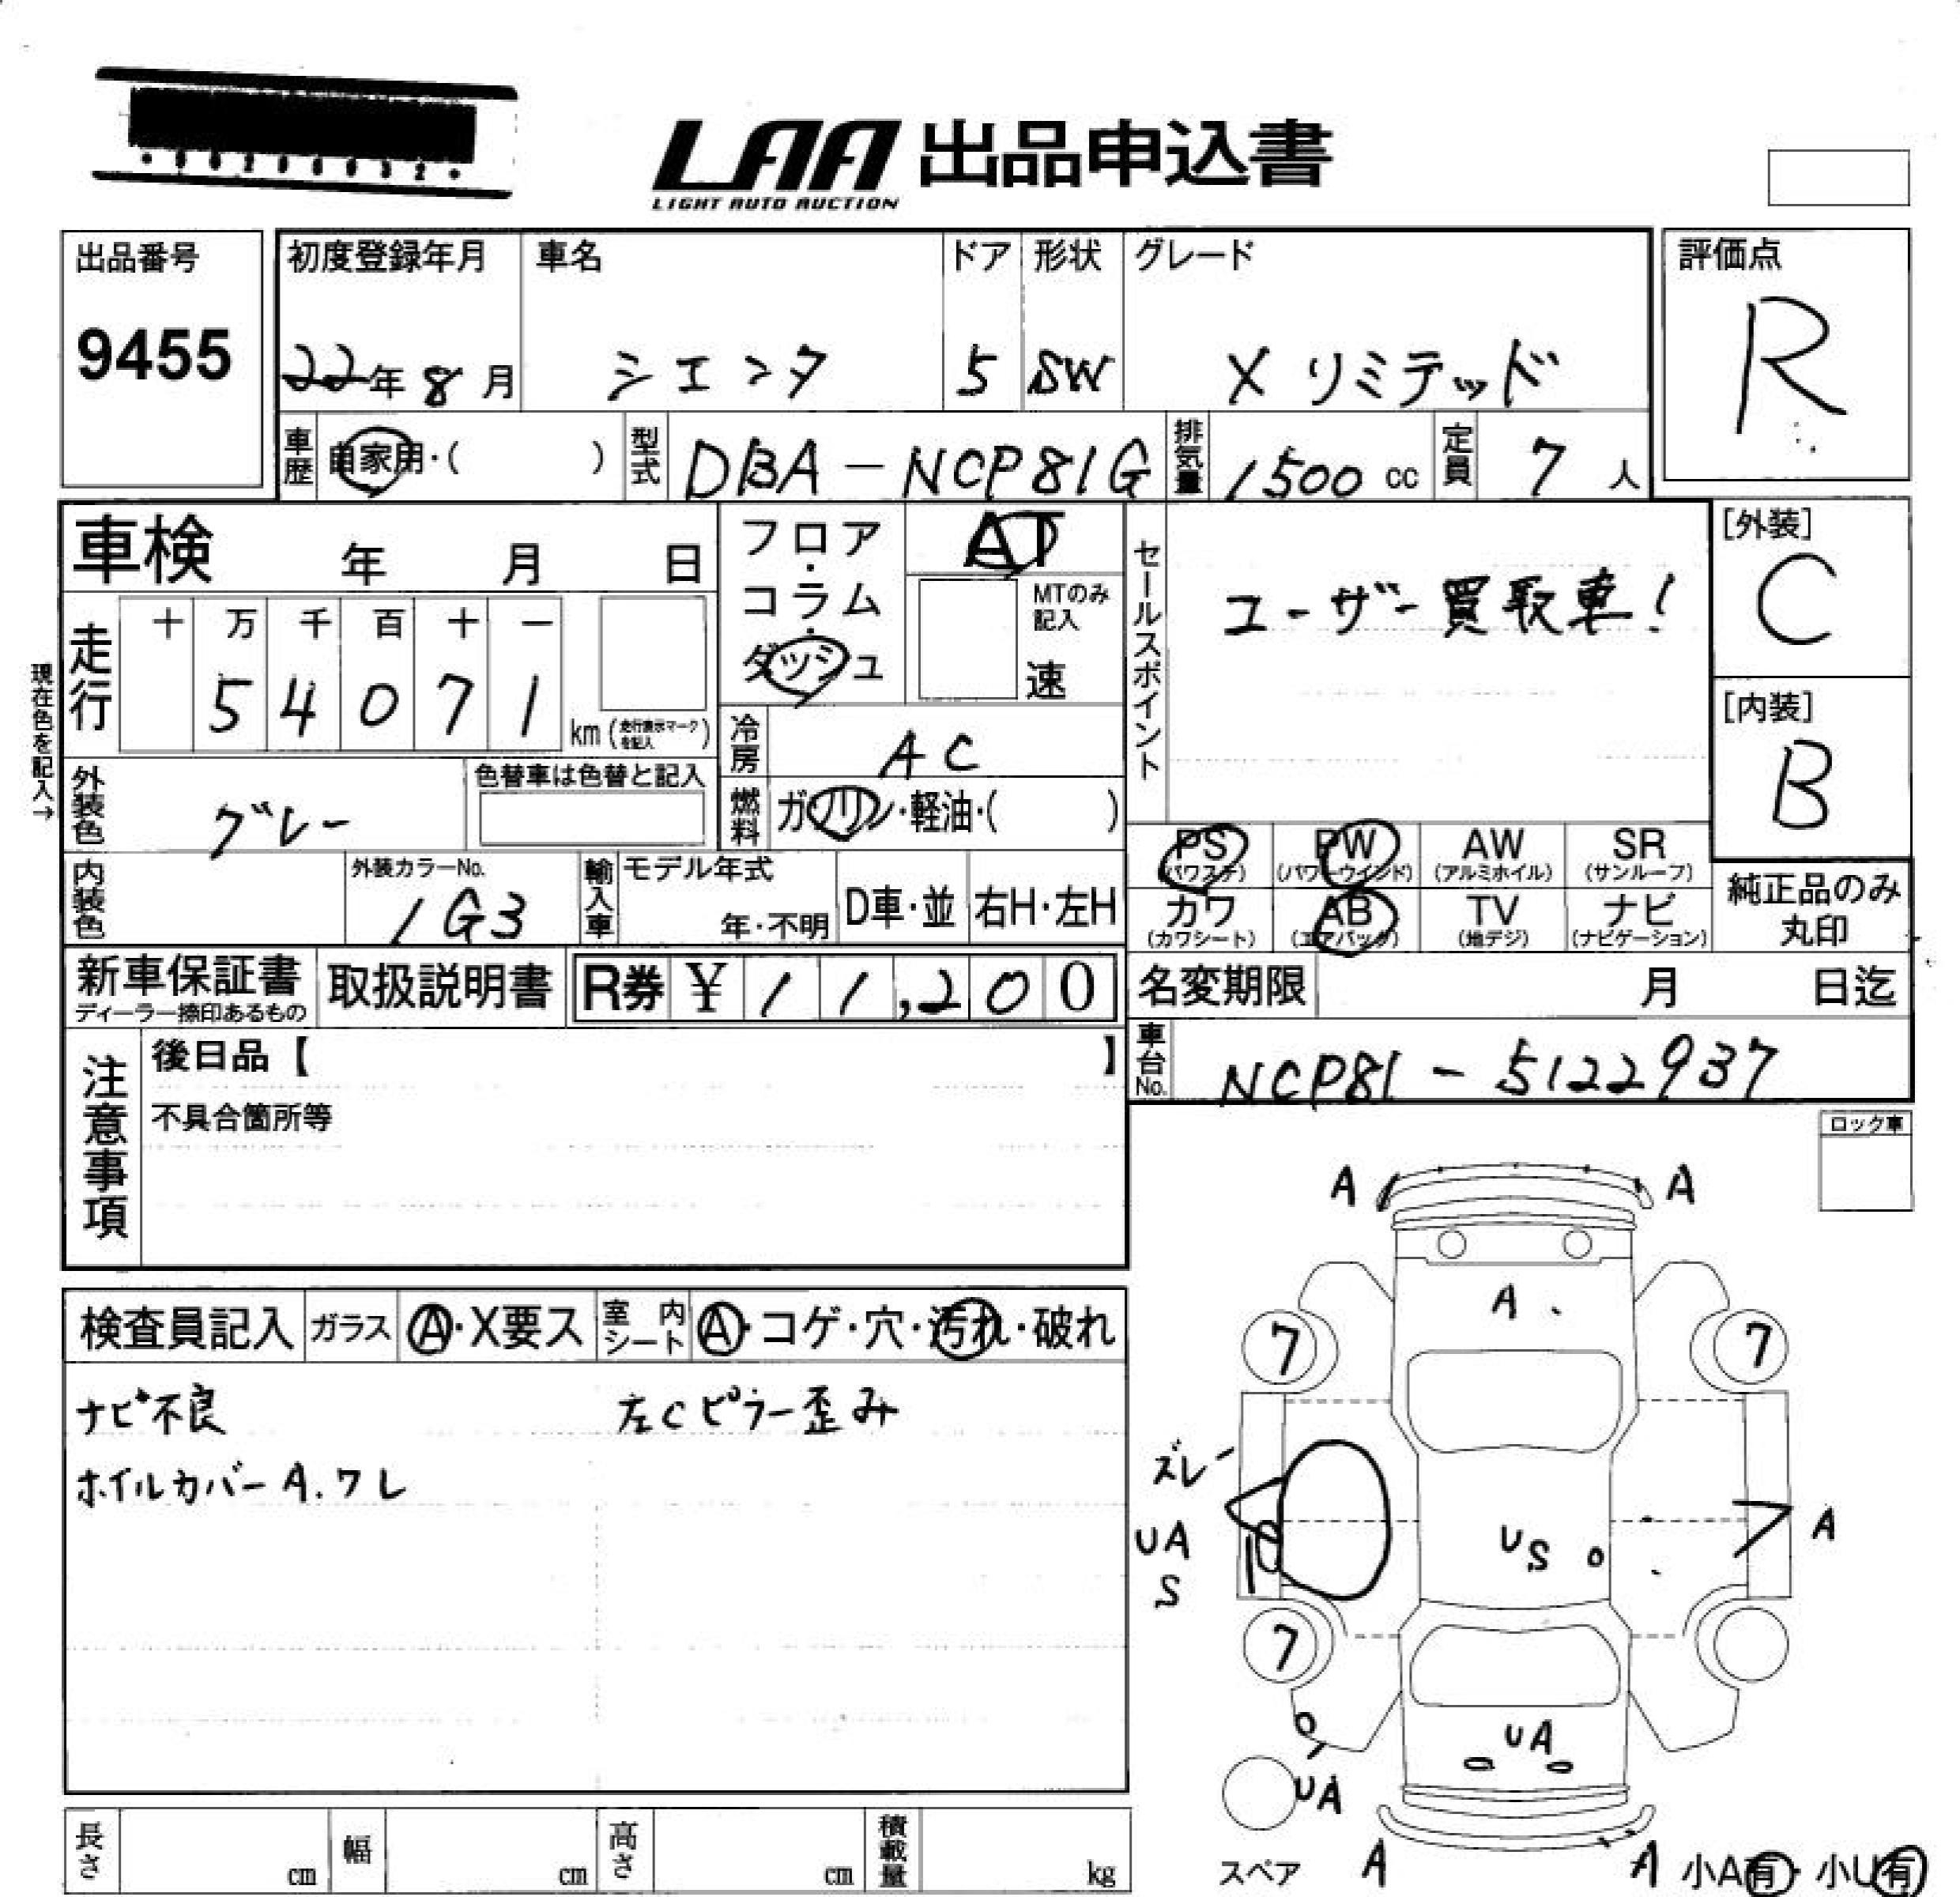 LAA 出品申込書
LIGHT AUTO AUCTION
出品番号
9455
初度登録年月
22年8月
車名
シエンタ
ドア
5
形状
SW
グレード
X リミテッド
評価点
R
車歴
自家用・( )
型式
DBA-NCP81G
排気量
1500 cc
定員
7 人
車検 年 月 日
現在色を記入→
走行
十 万 千 百 十 一
5 4 0 7 1
km (走行表示マークを記入)
フロア・コラム・ダッシュ
AT
MTのみ記入
速
冷房
AC
燃料
ガソリン・軽油・( )
セールスポイント
ユーザー買取車!
[外装]
C
[内装]
B
外装色
グレー
色替車は色替と記入
内装色
外装カラーNo.
1G3
輸入車
モデル年式
年・不明
D車・並
右H・左H
PS
(パワステ)
PW
(パワーウインド)
AW
(アルミホイル)
SR
(サンルーフ)
カワ
(カワシート)
AB
(エアバック)
TV
(地デジ)
ナビ
(ナビゲーション)
純正品のみ
丸印
新車保証書
ディーラー捺印あるもの
取扱説明書
R券 ¥ 1 1,2 0 0
名変期限 月 日迄
車台No.
NCP81-5122937
注意事項
後日品【 】
不具合箇所等
ロック車
検査員記入
ガラス
A・X要ス
室内シート
A・コゲ・穴・汚れ・破れ
ナビ不良
左Cピラー歪み
ホイルカバーA.ワレ
A A
A
7 7
ズレ
UA
S
US
A
7
UA
UA
スペア
A A
小A有・小U有
長さ cm
幅 cm
高さ cm
積載量 kg